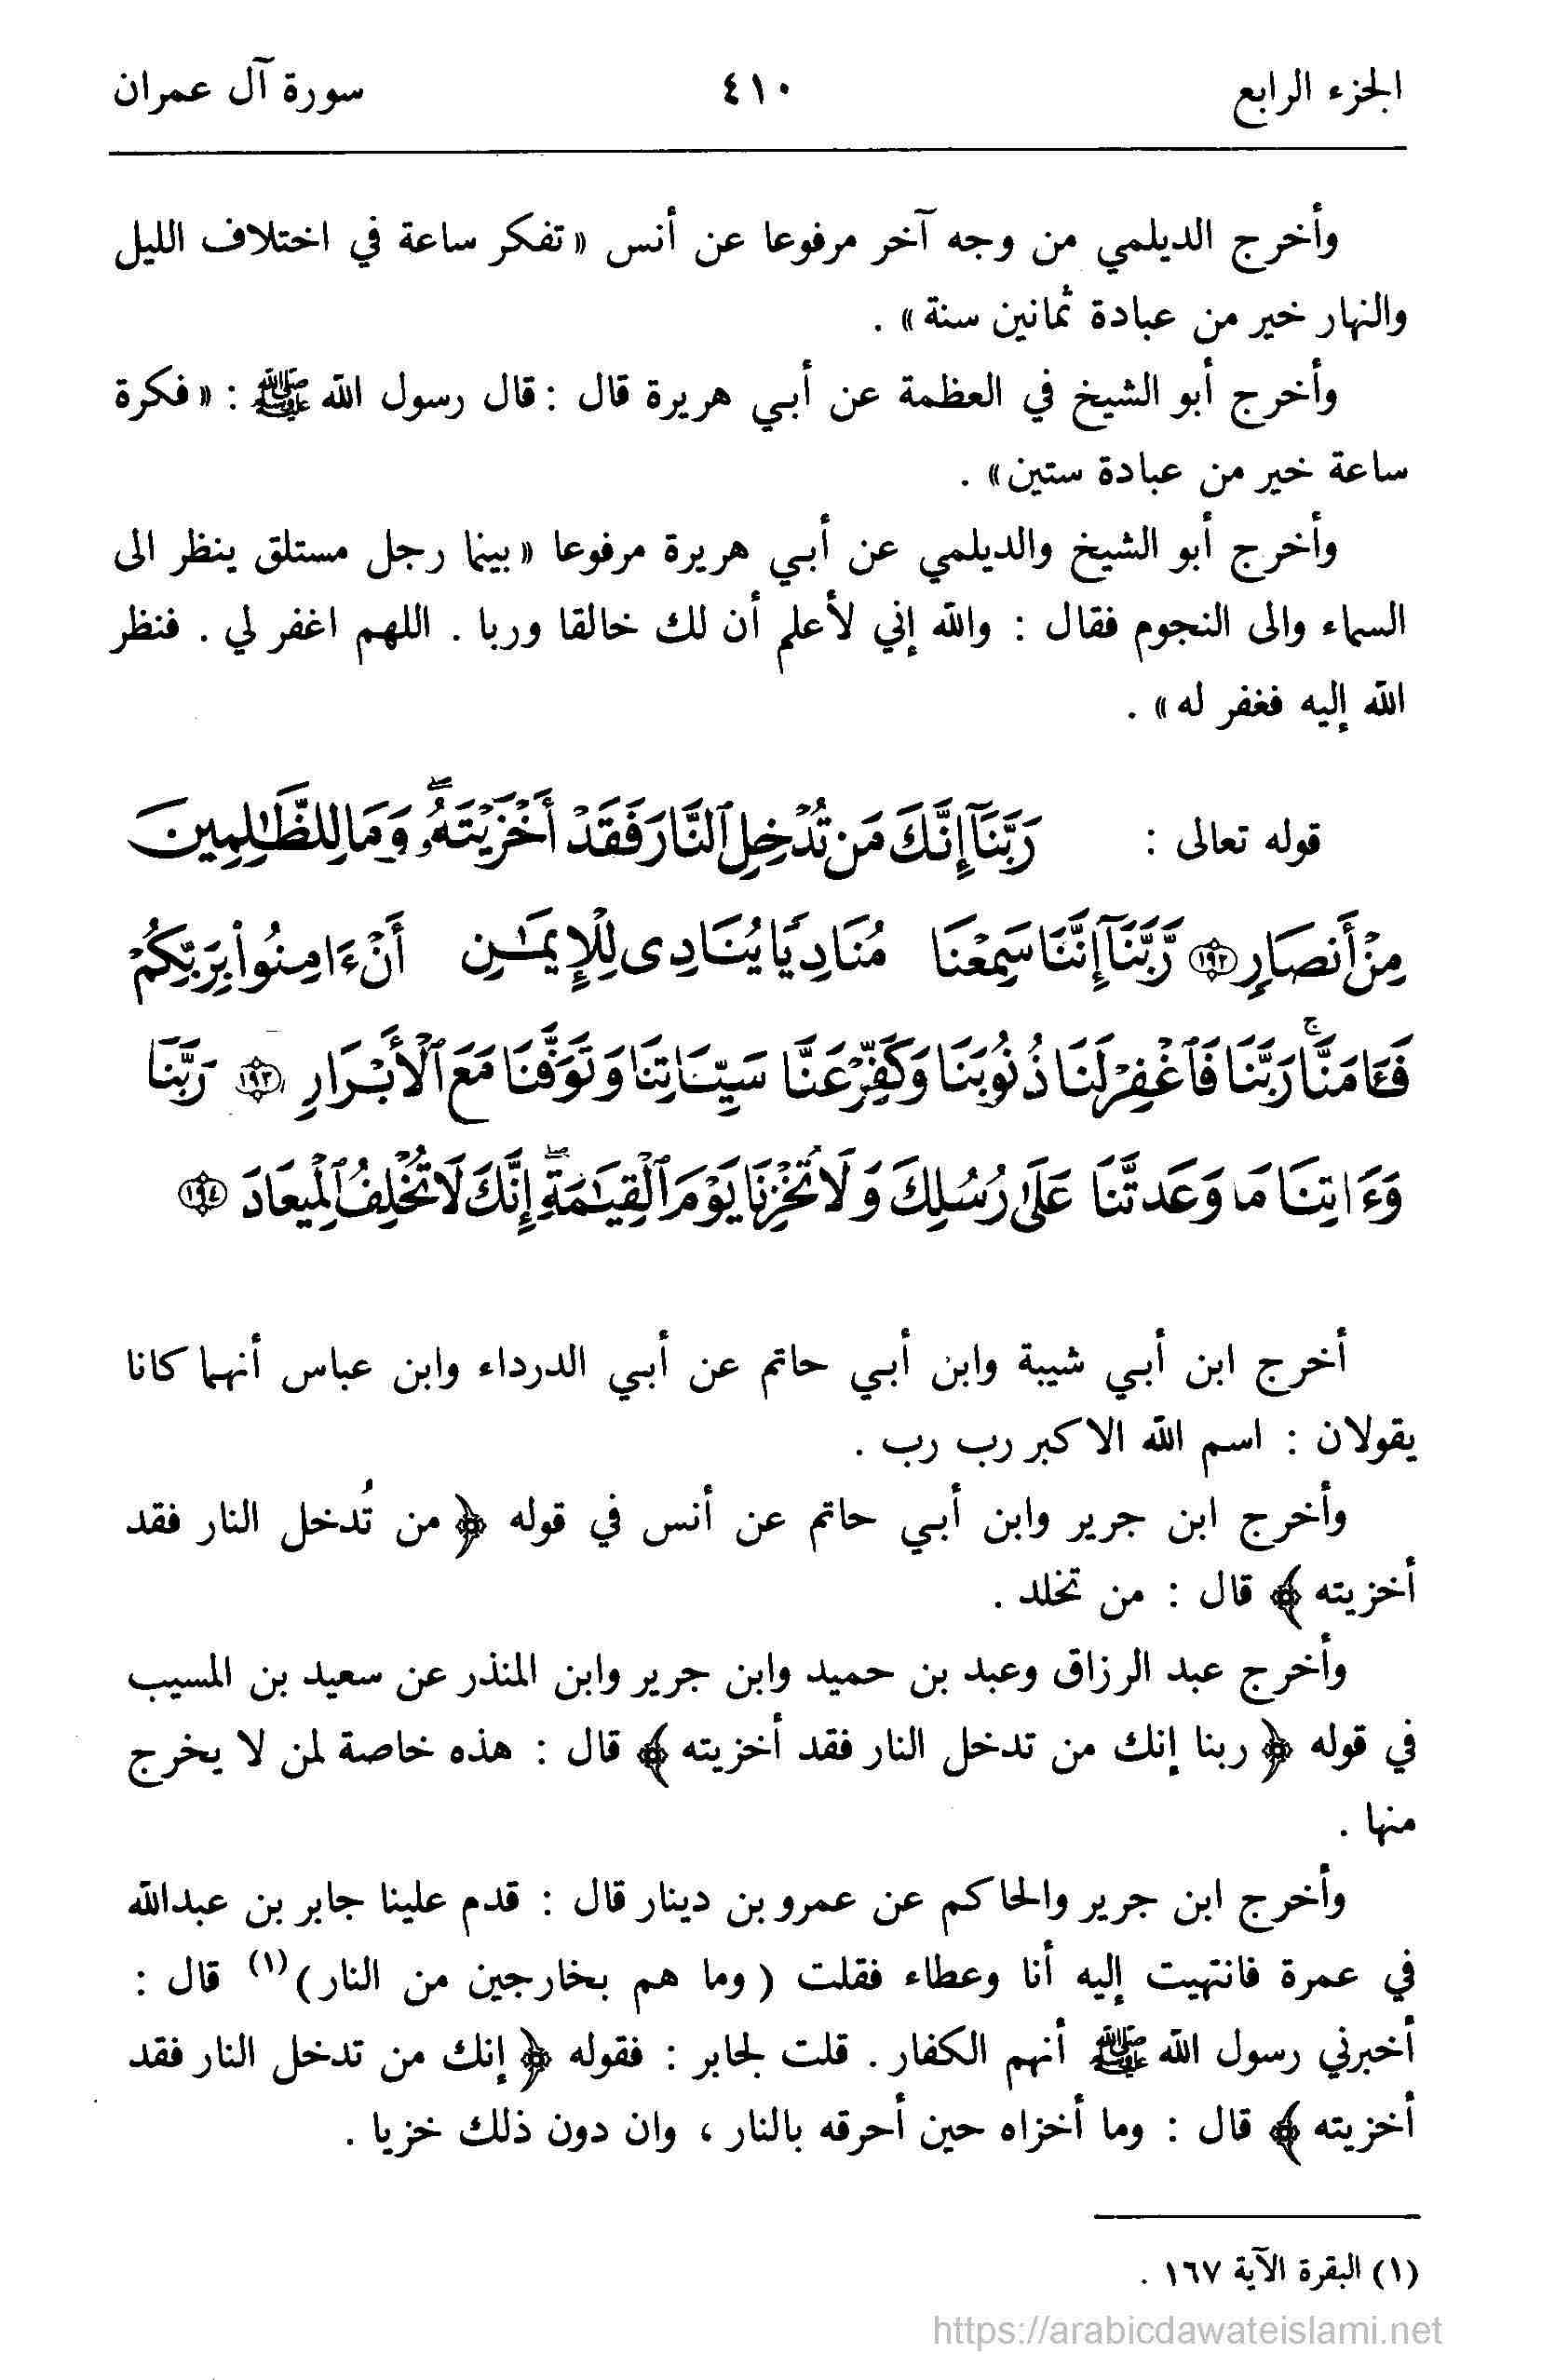 الجزء الرابع ٤١٠ سورة آل عمران
وأخرج الديلمي من وجه آخر مرفوعا عن أنس «تفكر ساعة في اختلاف الليل
والنهار خير من عبادة ثمانين سنة» .
وأخرج أبو الشيخ في العظمة عن أبي هريرة قال : قال رسول الله ﷺ : «فكرة
ساعة خير من عبادة ستين» .
وأخرج أبو الشيخ والديلمي عن أبي هريرة مرفوعا «بينما رجل مستلق ينظر الى
السماء والى النجوم فقال : والله إني لأعلم أن لك خالقا وربا . اللهم اغفر لي . فنظر
الله إليه فغفر له» .
قوله تعالى : رَبَّنَآ إِنَّكَ مَن تُدْخِلِ ٱلنَّارَ فَقَدْ أَخْزَيْتَهُۥ ۖ وَمَا لِلظَّـٰلِمِينَ
مِنْ أَنصَارٍ ۝١٩٢ رَّبَّنَآ إِنَّنَا سَمِعْنَا مُنَادِيًا يُنَادِى لِلْإِيمَـٰنِ أَنْ ءَامِنُوا۟ بِرَبِّكُمْ
فَـَٔامَنَّا ۚ رَبَّنَا فَٱغْفِرْ لَنَا ذُنُوبَنَا وَكَفِّرْ عَنَّا سَيِّـَٔاتِنَا وَتَوَفَّنَا مَعَ ٱلْأَبْرَارِ ۝١٩٣ رَبَّنَا
وَءَاتِنَا مَا وَعَدتَّنَا عَلَىٰ رُسُلِكَ وَلَا تُخْزِنَا يَوْمَ ٱلْقِيَـٰمَةِ ۖ إِنَّكَ لَا تُخْلِفُ ٱلْمِيعَادَ ۝١٩٤
أخرج ابن أبي شيبة وابن أبي حاتم عن أبي الدرداء وابن عباس أنهما كانا
يقولان : اسم الله الاكبر رب رب .
وأخرج ابن جرير وابن أبي حاتم عن أنس في قوله ﴿من تُدخل النار فقد
أخزيته﴾ قال : من تخلد .
وأخرج عبد الرزاق وعبد بن حميد وابن جرير وابن المنذر عن سعيد بن المسيب
في قوله ﴿ربنا إنك من تدخل النار فقد أخزيته﴾ قال : هذه خاصة لمن لا يخرج
منها .
وأخرج ابن جرير والحاكم عن عمرو بن دينار قال : قدم علينا جابر بن عبدالله
في عمرة فانتهيت إليه أنا وعطاء فقلت (وما هم بخارجين من النار)(١) قال :
أخبرني رسول الله ﷺ أنهم الكفار . قلت لجابر : فقوله ﴿إنك من تدخل النار فقد
أخزيته﴾ قال : وما أخزاه حين أحرقه بالنار ، وان دون ذلك خزيا .
(١) البقرة الآية ١٦٧ .
https://arabicdawateislami.net